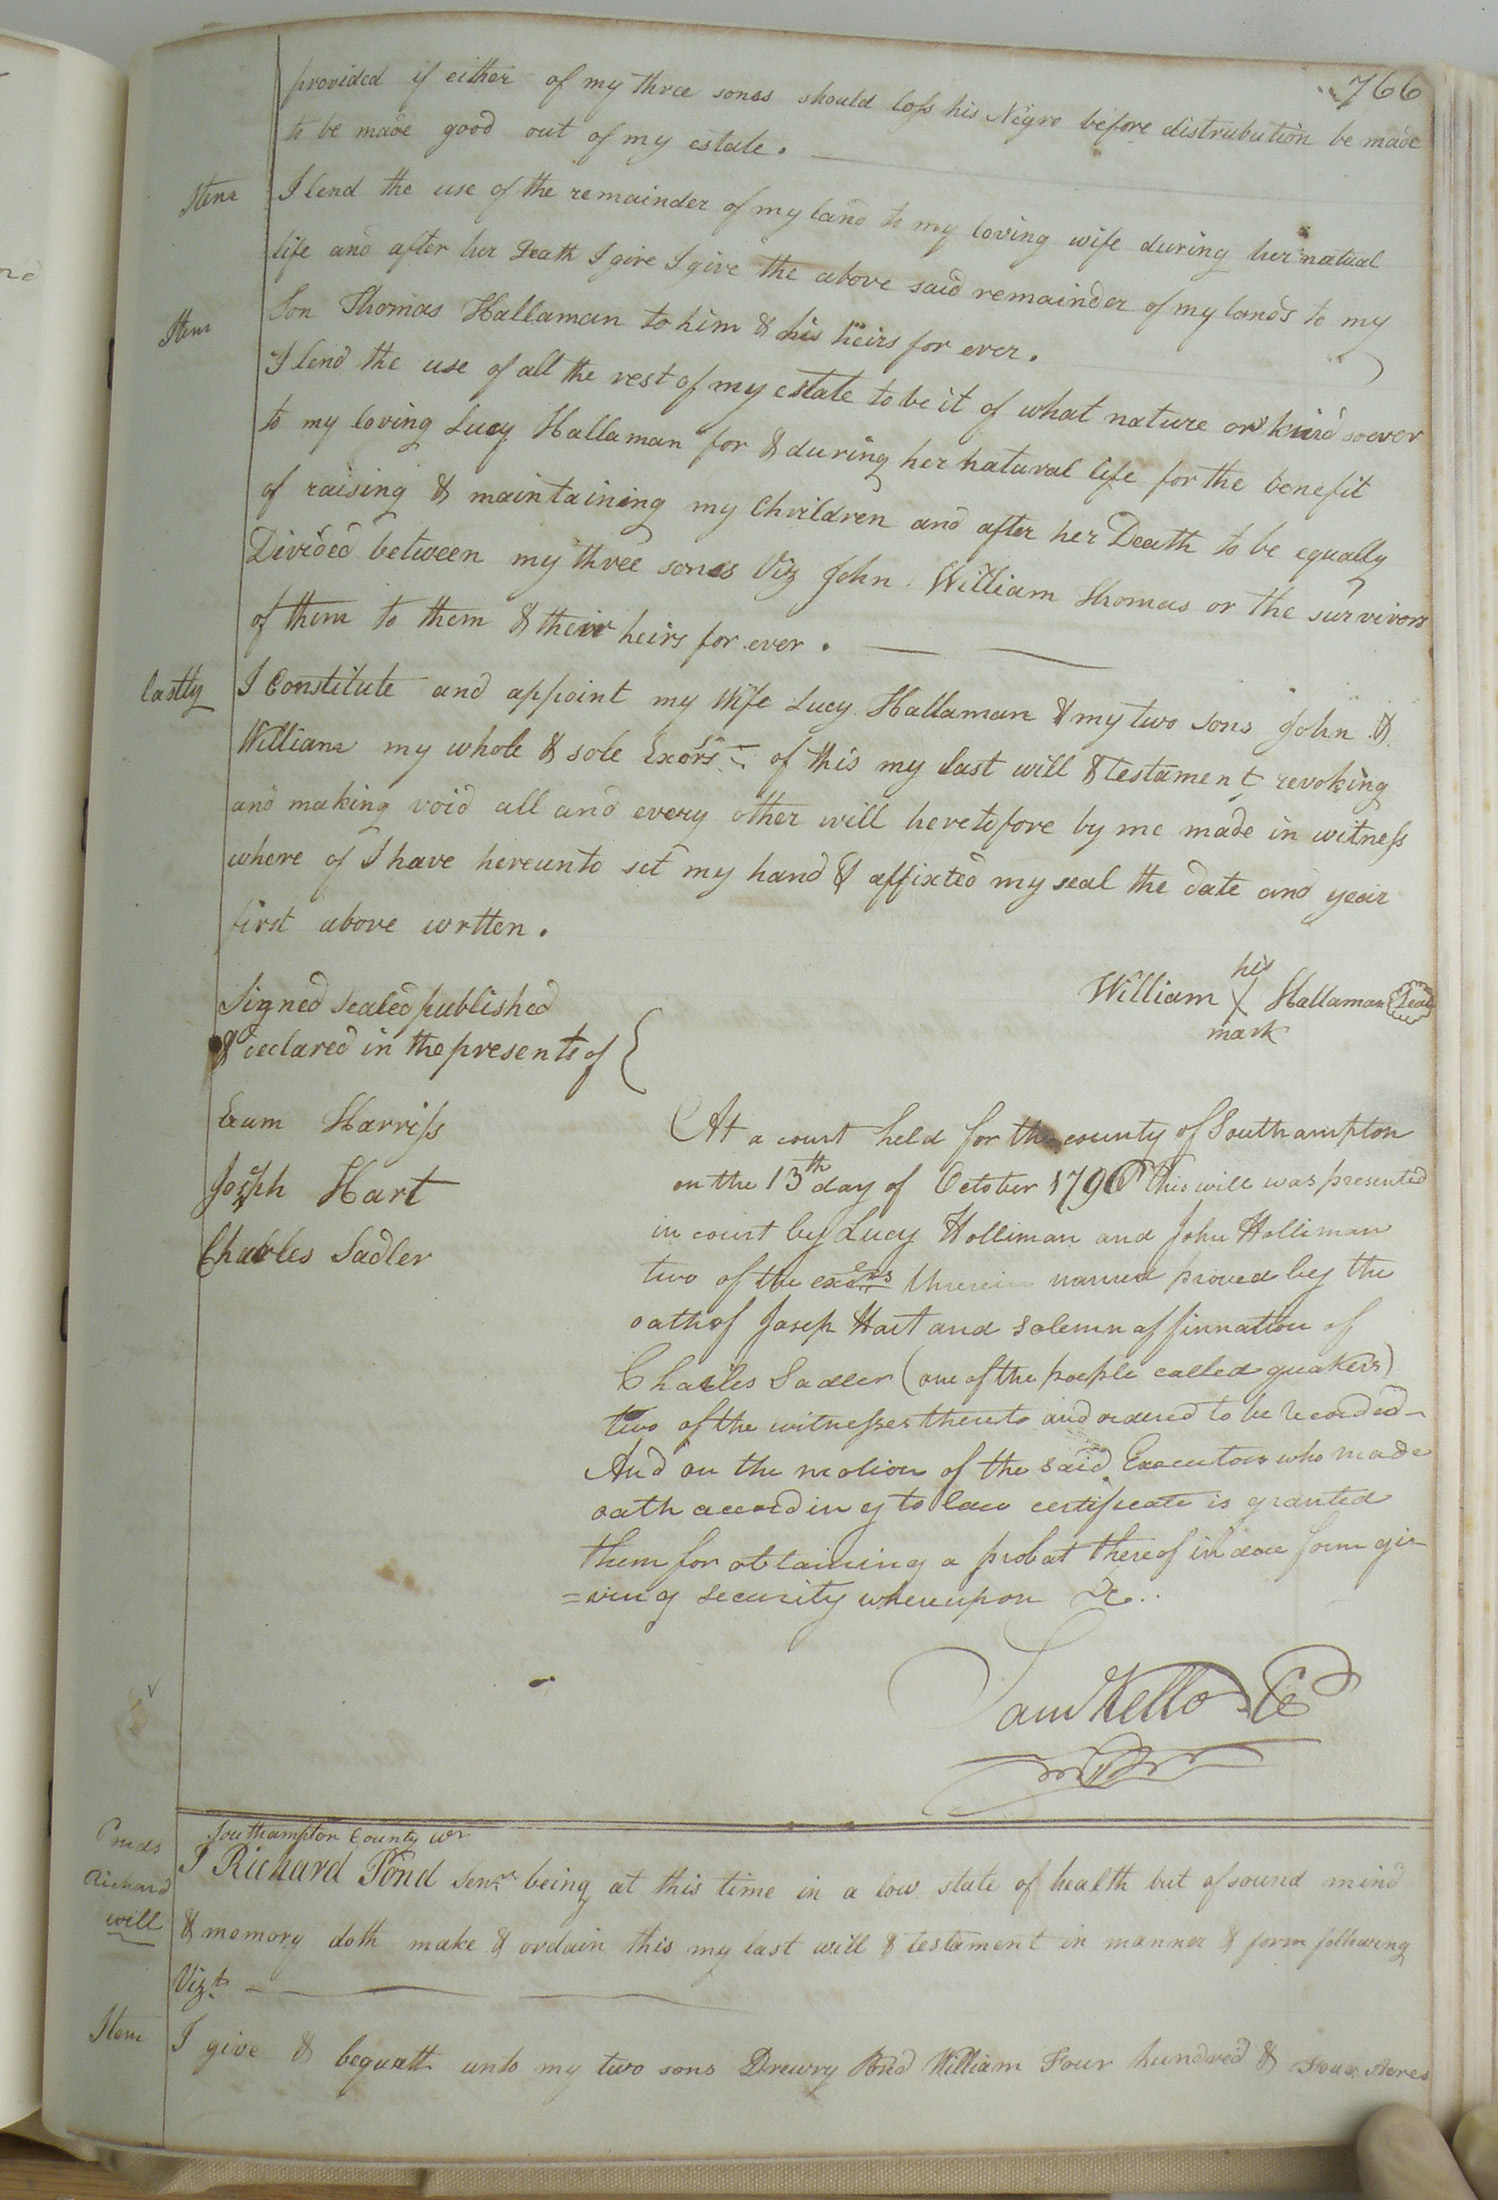 766
provided if either of my three sones should loss his Negro before distrubution be made
to be made good out of my estate.
Item I lend the use of the remainder of my land to my loving wife during her natural
life and after her Death I give I give the above said remainder of my lands to my
Son Thomas Hallaman to him & his heirs for ever.
Item I lend the use of all the rest of my estate to be it of what nature or kind soever
to my loving Lucy Hallaman for & during her natural life for the benefit
of raising & maintaining my Children and after her Death to be equally
Divided between my three sones Viz John William Thomas or the survivors
of them to them & their heirs for ever.
lastly I Constitute and appoint my Wife Lucy Hallaman & my two sons John &
William my whole & sole Exors of this my last will & testament revoking
and making void all and every other will heretofore by me made in witness
where of I have hereunto set my hand & affixted my seal the date and year
first above wrtten.
Signed sealed published
& declared in the presents of
William his X mark Hallaman Seal
Exum Harriss
Joseph Hart
Charles Sadler
At a court held for the county of Southampton
on the 13th day of October 1796 this will was presented
in court by Lucy Holliman and John Holliman
two of the exors therein named proved by the
oath of Joseph Hart and solemn affirmation of
Charles Sadler (one of the people called quakers)
two of the witnesses thereto and ordered to be recorded
And on the motion of the said Executors who made
oath according to law certificate is granted
them for obtaining a probat thereof in due form gi-
=ving security whereupon &c..
Saml Kello Cc
Ponds
Richard
will
Southampton County
I Richard Pond Senr being at this time in a low state of health but of sound mind
& memory doth make & ordain this my last will & testament in manner & form following
Vizt
Item I give & bequath unto my two sons Drewry Pond William Four hundred & Four Acres